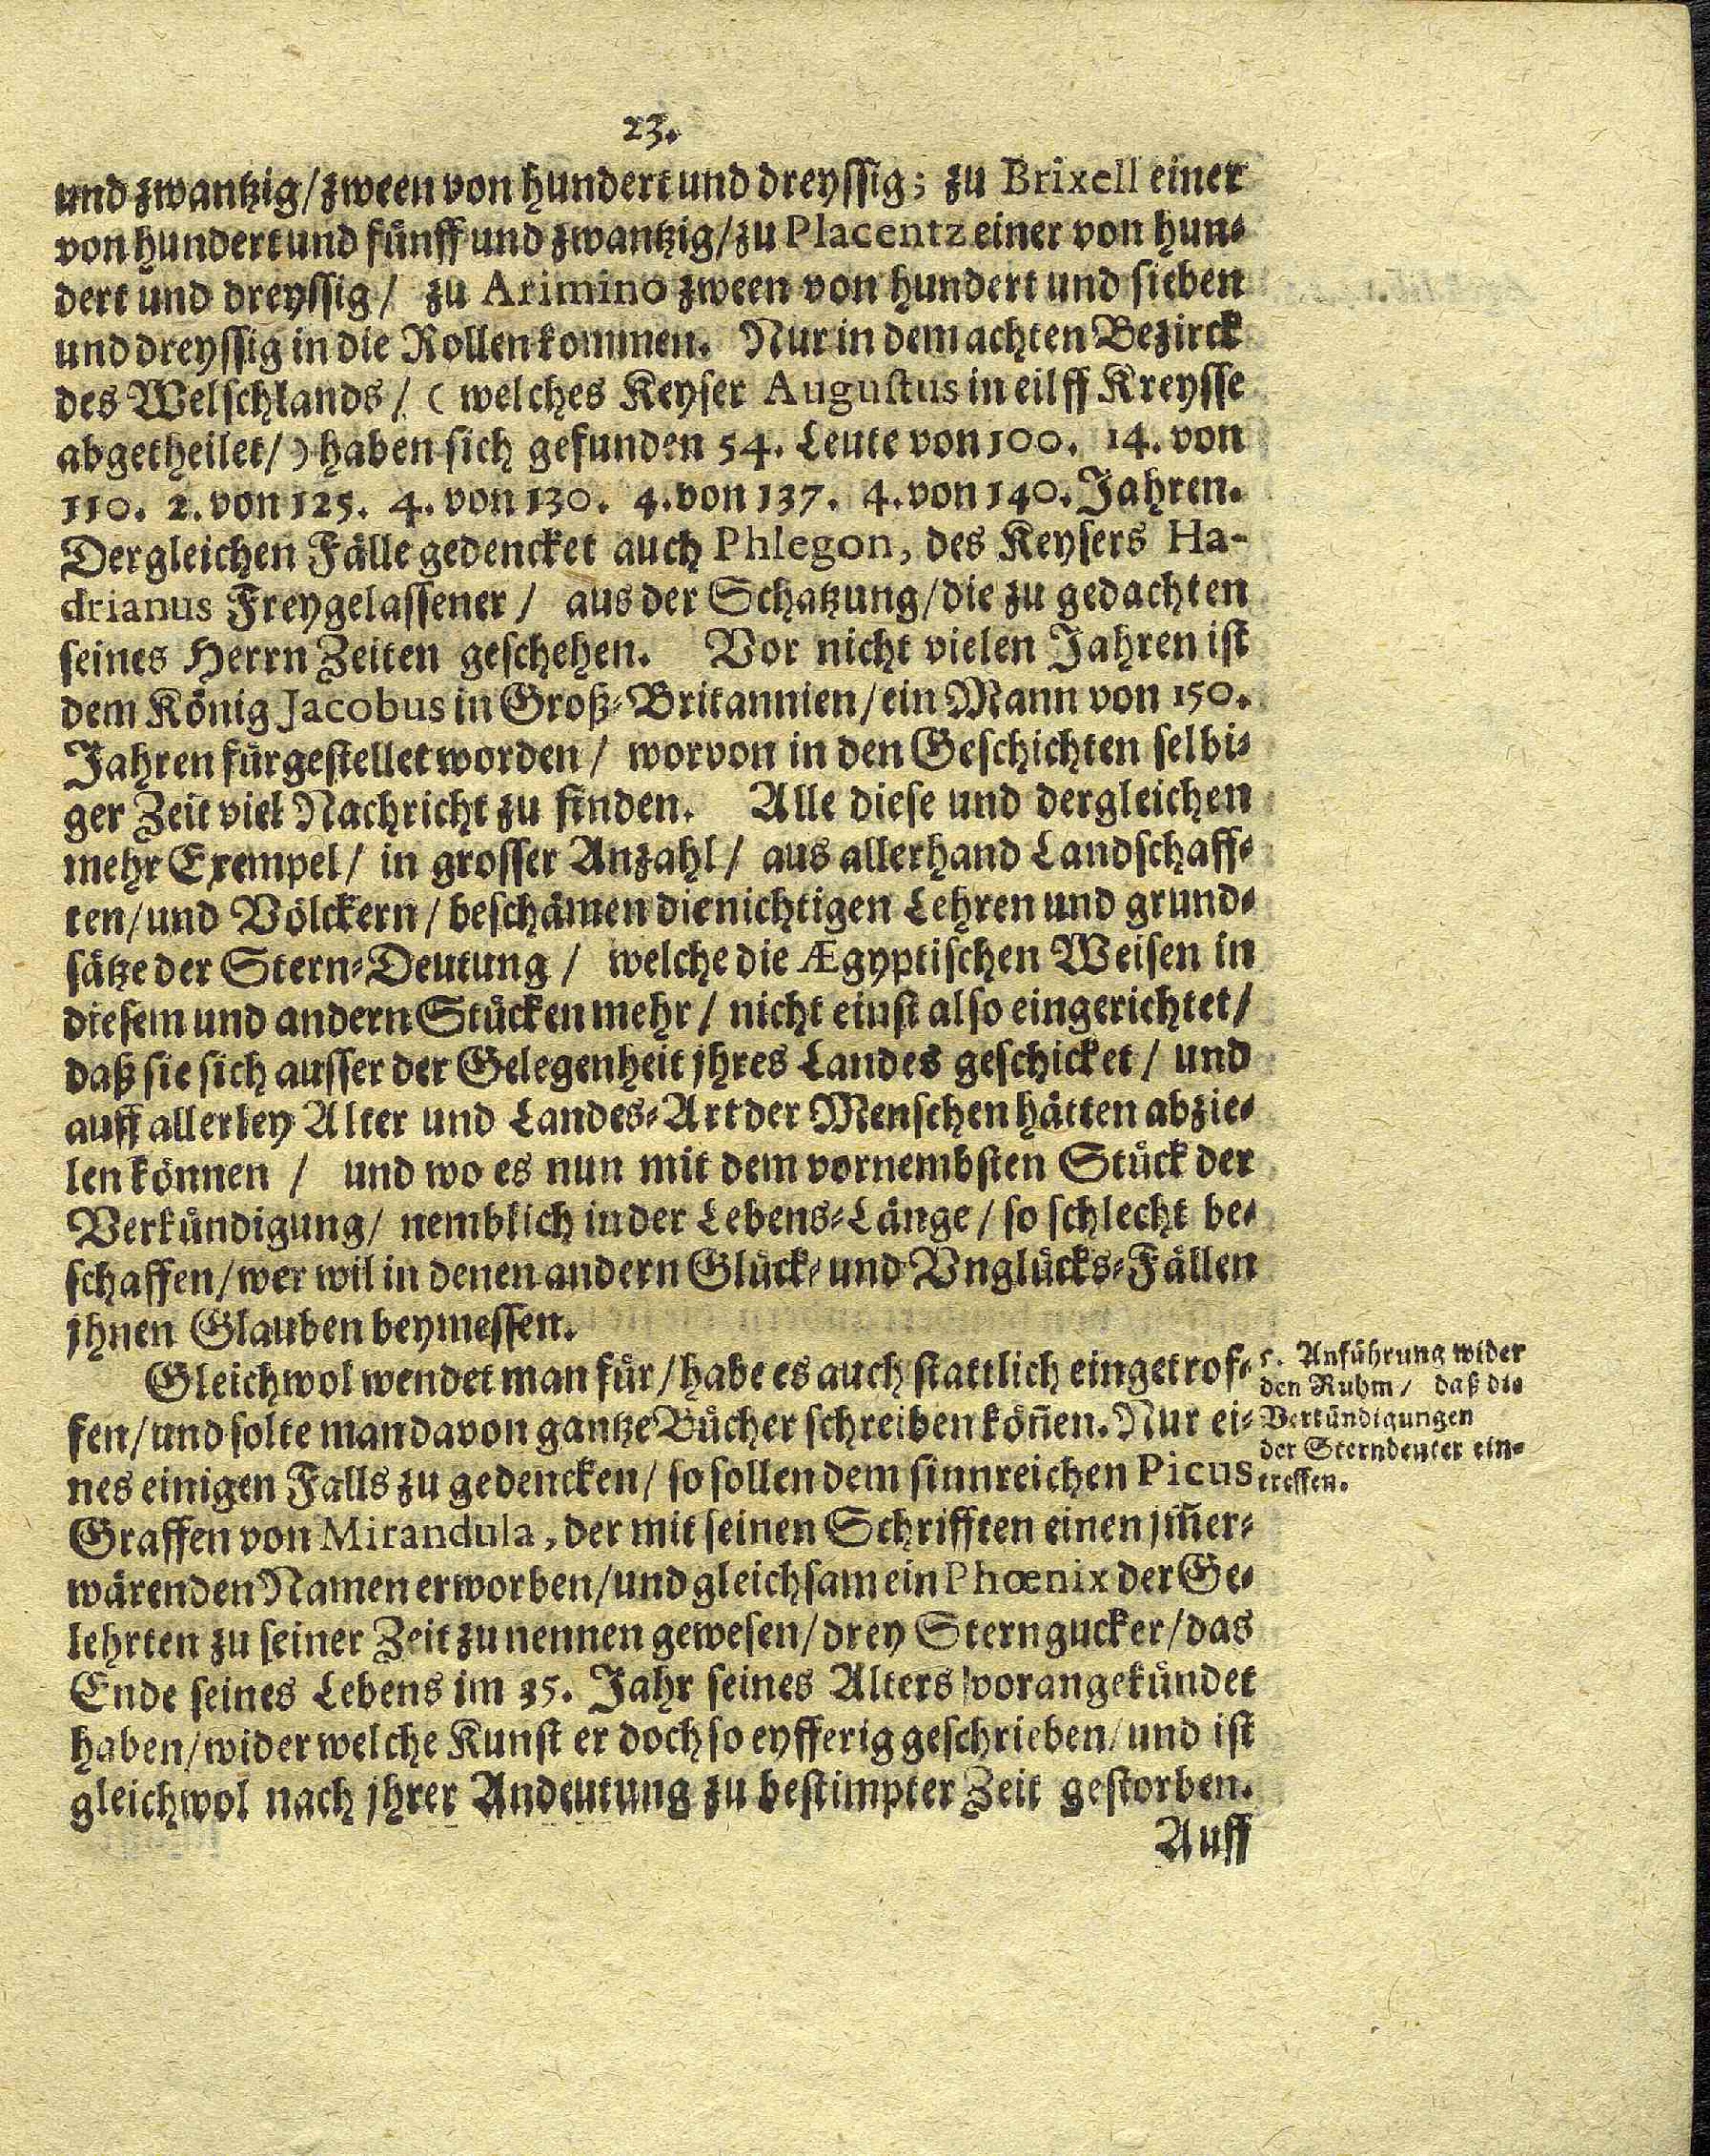 23.
und zwantzig/zween von hundert und dreyssig; zu Brixell einer
von hundert und fünff und zwantzig/zu Placentz einer von hun-
dert und dreyssig/ zu Arimino zween von hundert und sieben
und dreyssig in die Rollen kommen. Nur in dem achten Bezirck
des Welschlands/ (welches Keyser Augustus in eilff Kreysse
abgetheilet/) haben sich gefunden 54. Leute von 100. 14. von
110. 2. von 125. 4. von 130. 4. von 137. 4. von 140. Jahren.
Dergleichen Fälle gedencket auch Phlegon, des Keysers Ha-
drianus Freygelassener/ aus der Schatzung/die zu gedachten
seines Herrn Zeiten geschehen. Vor nicht vielen Jahren ist
dem König Jacobus in Groß-Britannien/ein Mann von 150.
Jahren fürgestellet worden/ worvon in den Geschichten selbi-
ger Zeit viel Nachricht zu finden. Alle diese und dergleichen
mehr Exempel/ in grosser Anzahl/ aus allerhand Landschaff-
ten/und Völckern/beschämen die nichtigen Lehren und grund-
sätze der Stern-Deutung/ welche die Ægyptischen Weisen in
diesem und andern Stücken mehr/ nicht einst also eingerichtet/
daß sie sich ausser der Gelegenheit jhres Landes geschicket/ und
auff allerley Alter und Landes-Art der Menschen hätten abzie-
len können/ und wo es nun mit dem vornembsten Stück der
Verkündigung/ nemblich in der Lebens-Länge/so schlecht be-
schaffen/wer wil in denen andern Glück- und Vnglücks-Fällen
jhnen Glauben beymessen.
Gleichwol wendet man für/habe es auch stattlich eingetrof-
fen/und solte man davon gantze Bücher schreiben köñen. Nur ei-
nes einigen Falls zu gedencken/ so sollen dem sinnreichen Picus
Graffen von Mirandula, der mit seinen Schrifften einen jm̃er-
wärenden Namen erworben/und gleichsam ein Phœnix der Ge-
lehrten zu seiner Zeit zu nennen gewesen/drey Sterngucker/das
Ende seines Lebens im 35. Jahr seines Alters vorangekündet
haben/wider welche Kunst er doch so eyfferig geschrieben/und ist
gleichwol nach jhrer Andeutung zu bestimpter Zeit gestorben.
Auff
5. Anführung wider
den Ruhm/ daß die
Verkündigungen
der Sterndeuter ein-
treffen.